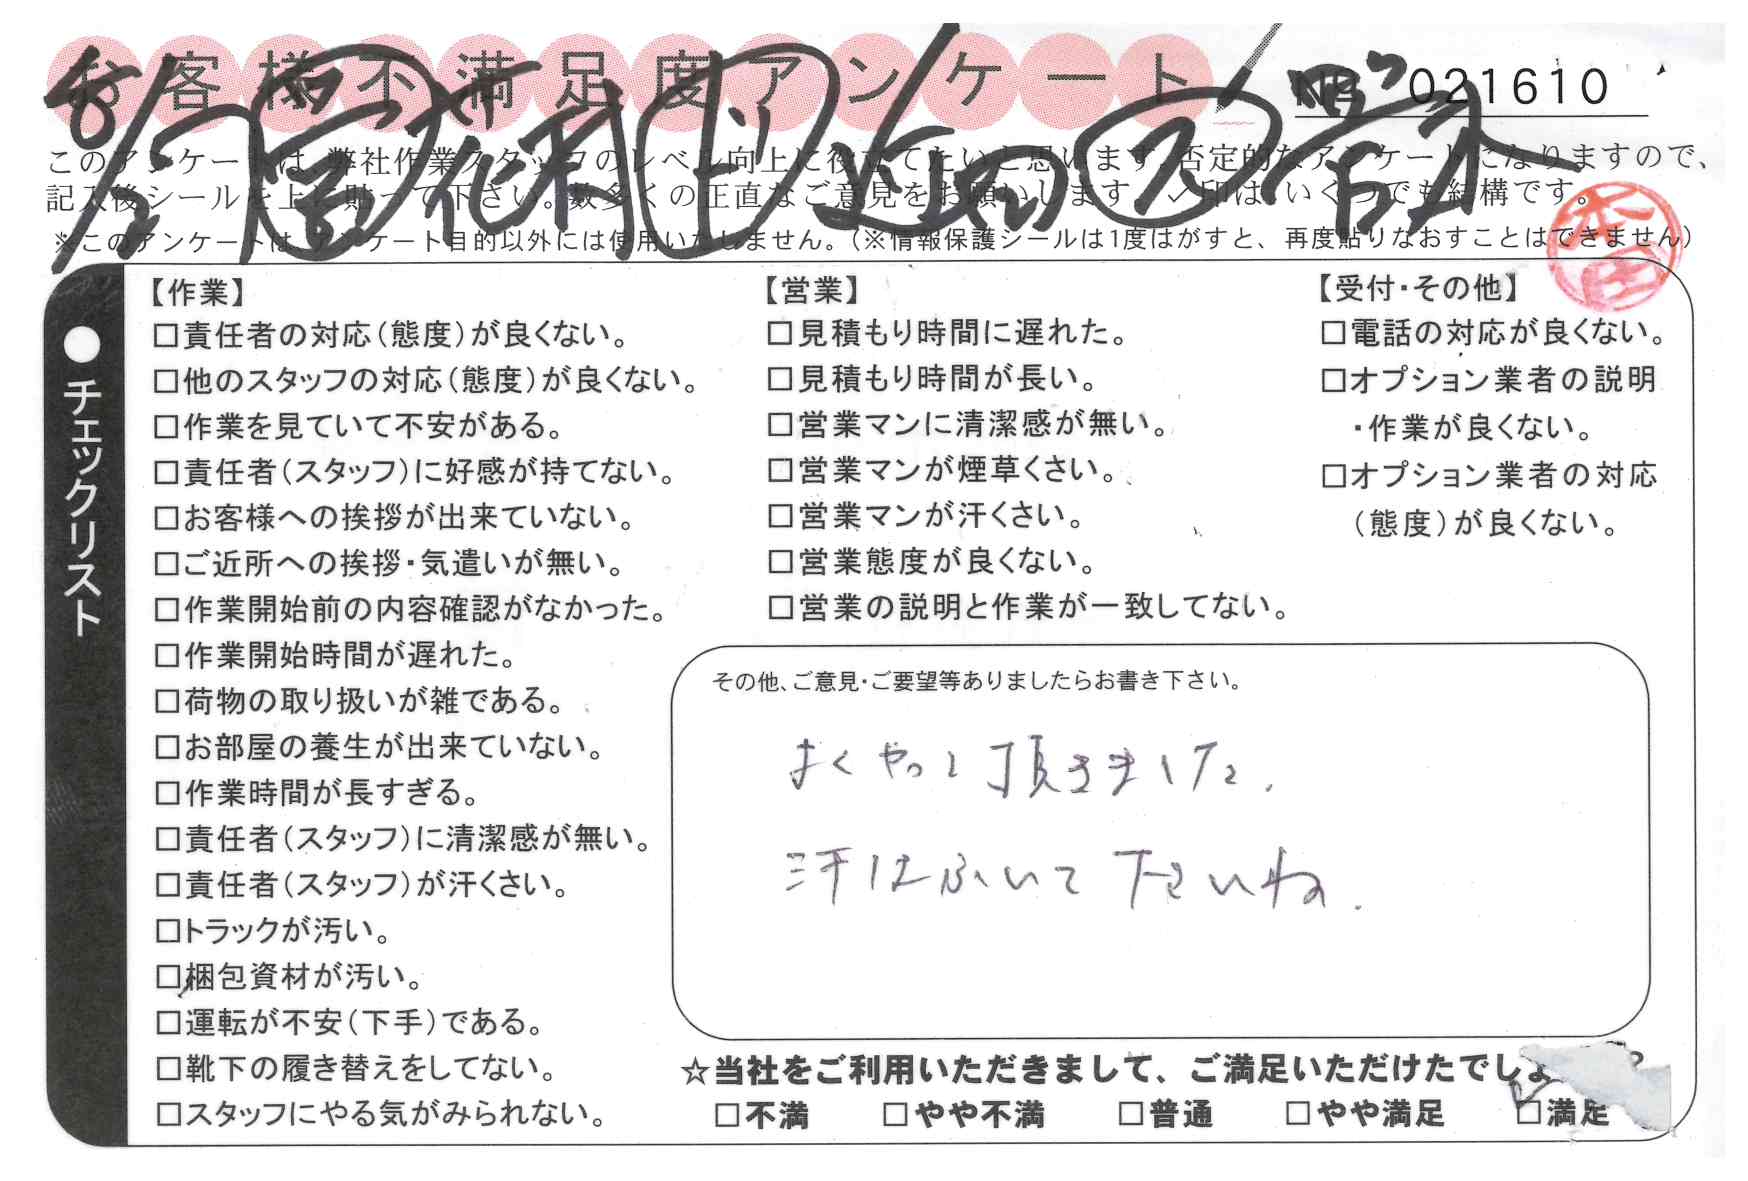 お客様不満足度アンケート
№ 021610
このアンケートは、弊社作業スタッフのレベル向上に役立てたいと思います。否定的なアンケートになりますので、
記入後シールを上に貼って下さい。数多くの正直なご意見をお願いします。✓印は、いくつでも結構です。
※このアンケートは、アンケート目的以外には使用いたしません。(※情報保護シールは1度はがすと、再度貼りなおすことはできません)
本田
●チェックリスト
【作業】
□責任者の対応(態度)が良くない。
□他のスタッフの対応(態度)が良くない。
□作業を見ていて不安がある。
□責任者(スタッフ)に好感が持てない。
□お客様への挨拶が出来ていない。
□ご近所への挨拶・気遣いが無い。
□作業開始前の内容確認がなかった。
□作業開始時間が遅れた。
□荷物の取り扱いが雑である。
□お部屋の養生が出来ていない。
□作業時間が長すぎる。
□責任者(スタッフ)に清潔感が無い。
□責任者(スタッフ)が汗くさい。
□トラックが汚い。
□梱包資材が汚い。
□運転が不安(下手)である。
□靴下の履き替えをしてない。
□スタッフにやる気がみられない。
【営業】
□見積もり時間に遅れた。
□見積もり時間が長い。
□営業マンに清潔感が無い。
□営業マンが煙草くさい。
□営業マンが汗くさい。
□営業態度が良くない。
□営業の説明と作業が一致してない。
【受付・その他】
□電話の対応が良くない。
□オプション業者の説明
・作業が良くない。
□オプション業者の対応
(態度)が良くない。
その他、ご意見・ご要望等ありましたらお書き下さい。
よくやって頂きました。
汗はふいて下さいね。
☆当社をご利用いただきまして、ご満足いただけたでしょ
□不満 □やや不満 □普通 □やや満足 ☑満足